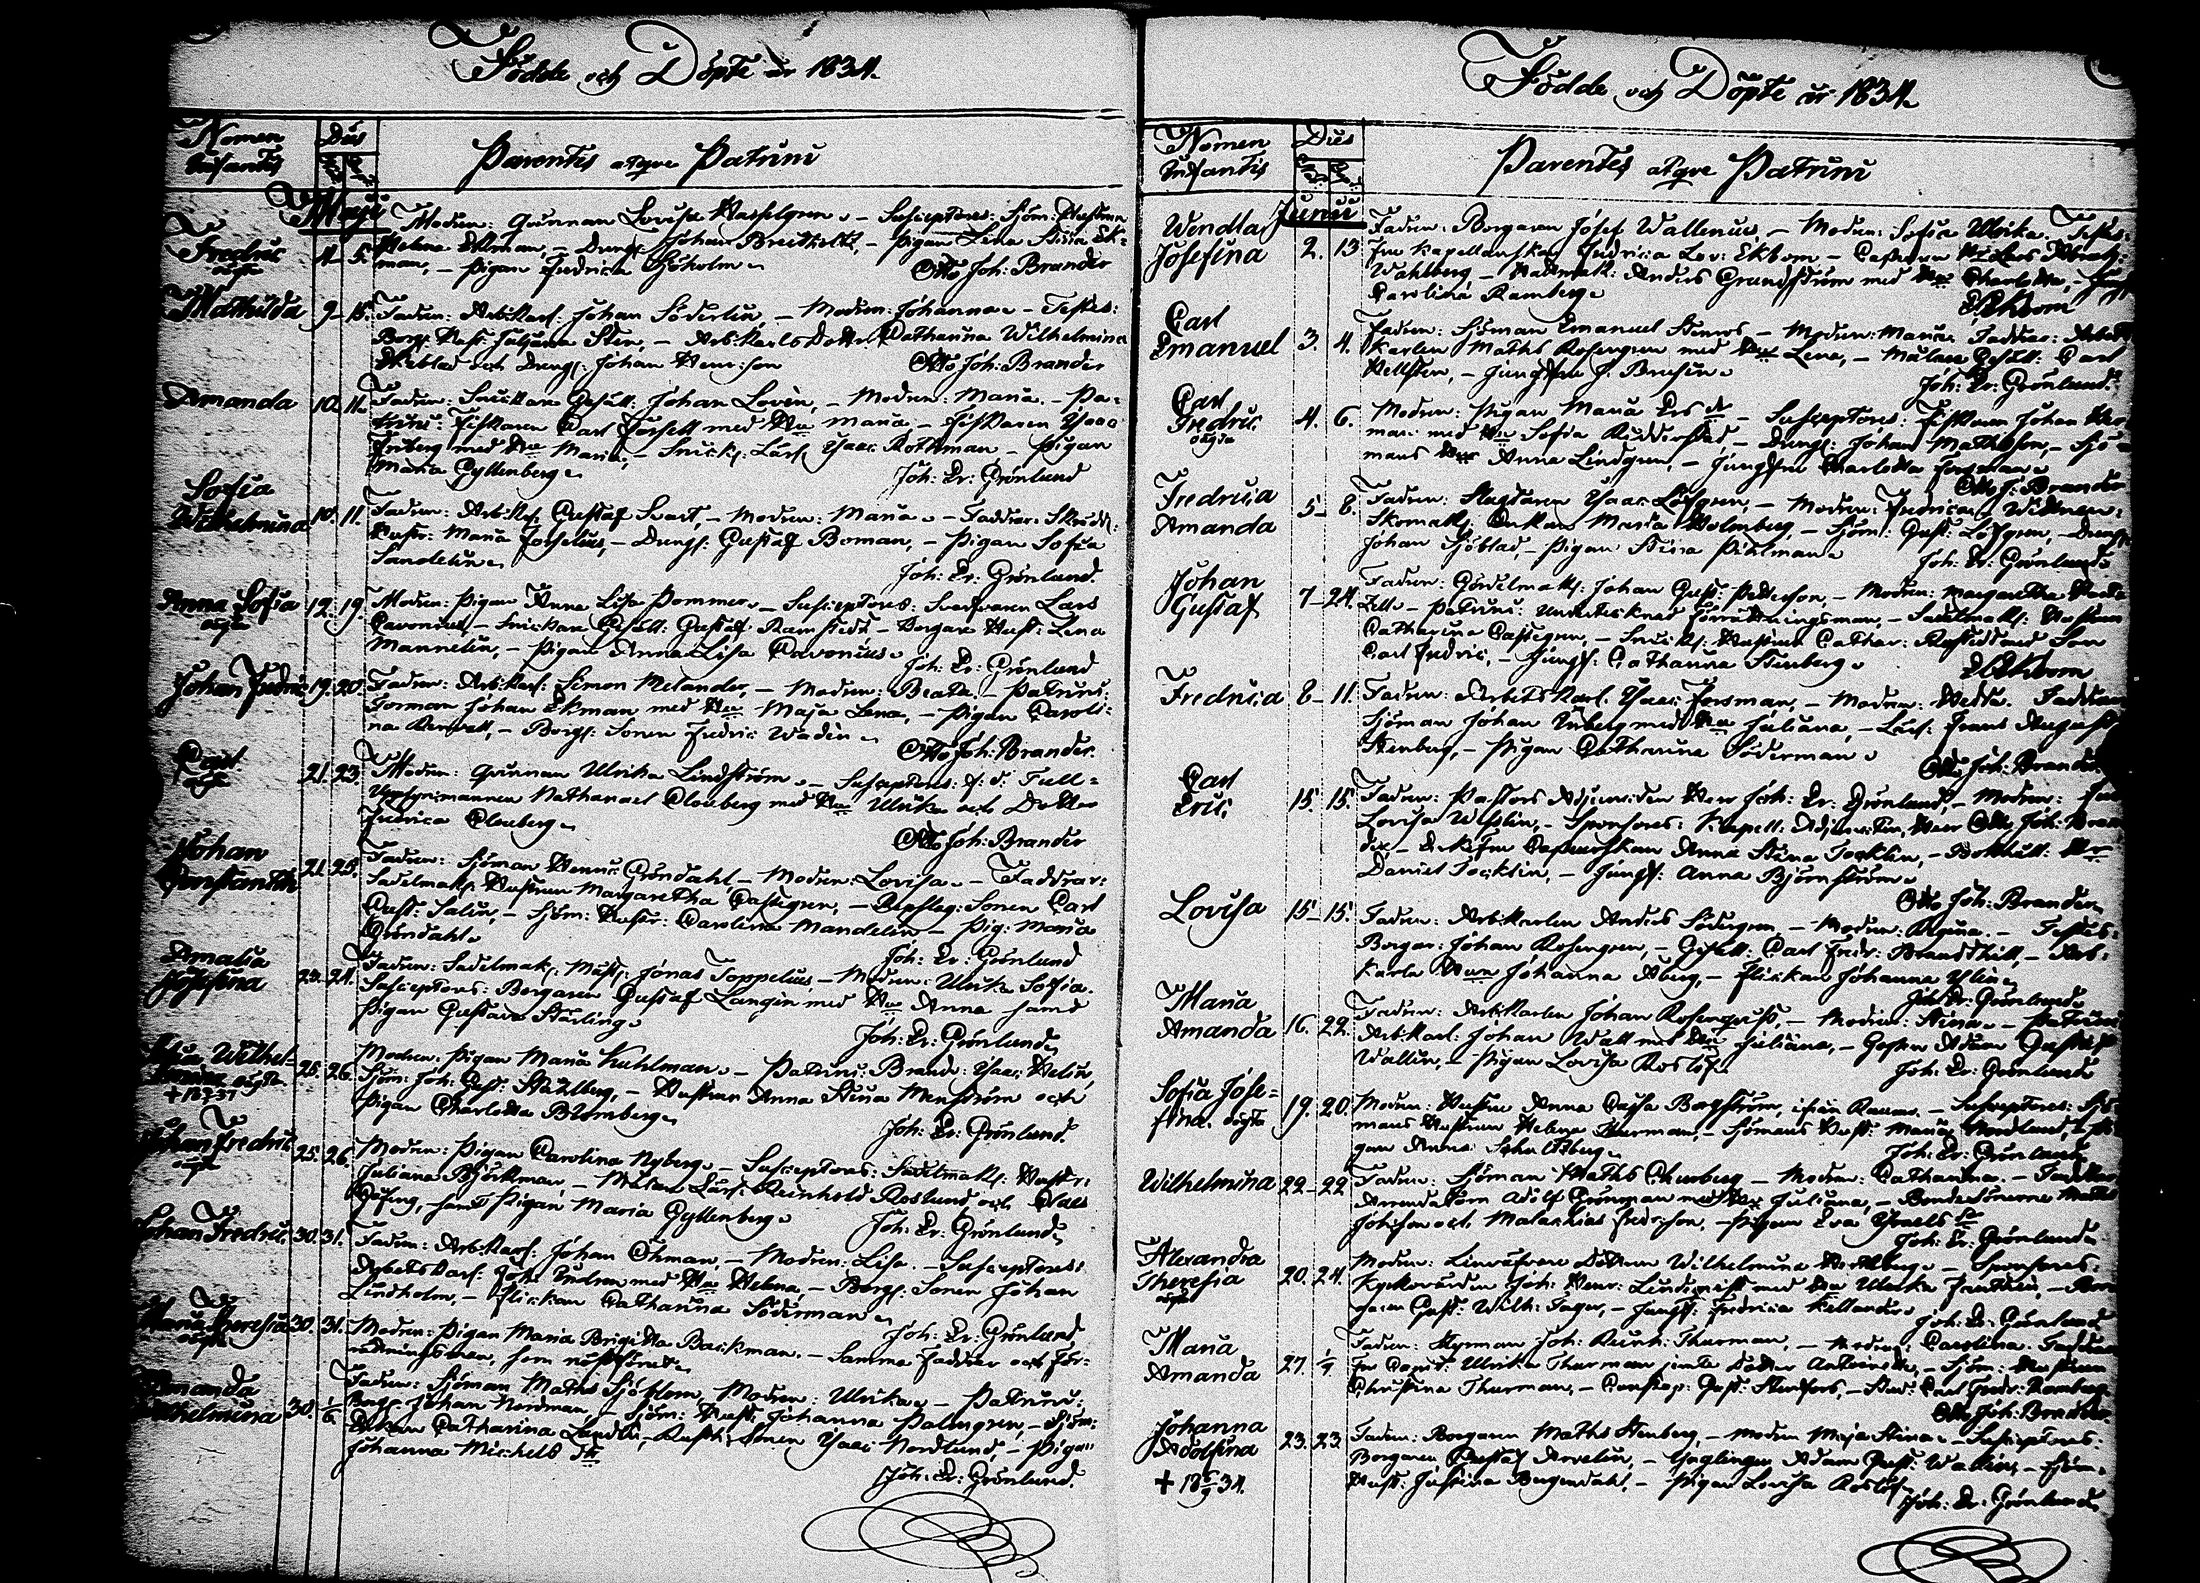 Födde och Döpte år 1834.
Nomen Infantis
Dies
Parentes atqve Patrini
Maji
Fredric
oägta
4. 5.
Modren: Qvinnan Lovisa Hasselgren. – Susceptores: Sjöm: Hustrun
Helena Ekman, – Drengen Johan Breitholtz, – Pigan Lena Stina Ek=
man, – Pigan Fredrica Sjöholm.
Otto Joh: Brander
Mathilda
9. 15.
Fadren: Arb:Karl: Johan Söderlin, – Modren: Johanna. – Testes:
Borg: Hust: Juliana Sten, – Arb:karls Dottr: Catharina Wilhelmina
och Dreng: Johan Henr:son
Otto Joh: Brander
Amanda
10. 11.
Fadren: Snickare Gesäll: Johan Lovén, – Modren: Maria. – Pa=
trini: Fiskaren Carl Forsell med Hu Maria, – Fiskaren Isaac
Friberg med Hu Maria, – Snick: Lärl: Isaac Rothman – Pigan
Maria Gyllenberg.
Joh: Er: Grönlund
Sofia
Wilhelmina
10. 11.
Fadren: Arb:Karl Gustaf Svart, – Modren: Maria. – Faddrar: Skrädd:
Hustr: Maria Forselius, – Drengs: Gustaf Boman, – Pigan Sofia
Sandelin.
Joh: Er: Grönlund.
Anna Sofia
oägta
12. 19.
Modren: Pigan Anna Lisa Pommer. – Susceptores: Svarfvaren Lars
Cavonius, – Snickare Gesäll: Gustaf Ramstedt, – Borgare Hust: Lena
Mannelin, – Pigan Anna Lisa Cavonius.
Joh: Er: Grönlund
Johan Fredric
19. 20.
Fadren: Arb:Karl: Simon Melander, – Modren: Beata. – Patrini:
Forman Johan Ekman med Hu Maja Lena, – Pigan Caroli=
na – Borgs: Sonen Fredric Wadén.
Otto Joh: Brander.
Carl
oägta
21. 23.
Modren: Qvinnan Ulrika Lindström. – Susceptores: f: d: Tull=
Uppsyn:mannen Nathanael Clouberg med Hu Ulrika och Dotter
Fredrica Clouberg.
Otto Joh: Brander
Johan
Constantin
21. 25.
Fadren: Sjöman Henric Gröndahl – Modren: Lovisa. – Faddrar:
Sadelmak: Hustrun Margaretha Castegren, – Sonen Carl
Gust: Salin, – Sjöm: Hustr: Carolina Mandelin – Pig: Maria
Gröndahl.
Joh: Er: Grönlund
Amalia
Josefina
23. 24.
Fadren: Sadelmak: Mäst: Jonas Toppelius – Modren: Ulrika Sofia.
Susceptores: Borgaren Gustaf Langin med Hu Anna samt
Pigan Gustava Stärling.
Joh: Er: Grönlund.
Wilhel=
mina oägta
25. 26.
Modren: Pigan Maria Kuhlman. – Patrini: Isaac Helin,
Sjöm: Joh: Gust: Stahlberg, – Hustrun Anna Stina Menström och
Pigan Charlotta Blomberg.
Joh: Er: Grönlund.
Johan Fredric
oägta
25. 26.
Modren: Pigan Carolina Nyberg. – Susceptores: Sadelmak: Hustr:
Juliana Björkman – Lärl: Reinhold Roslund och Claes
samt Pigan Maria Gyllenberg.
Joh: Er: Grönlund.
Johan Fredric
30. 31.
Fadren: Arb:Karl: Johan Öhman, – Modren: Lisa. – Susceptores:
Arbetskarl: Joh: med Hu Helena, – Borgs: Sonen Johan
Lindholm, – Flickan Catharina Söderman.
Joh: Er: Grönlund
Maria Theresia
oägta
30. 31.
Modren: Pigan Maria Brigitta Backman. – Samma Faddrar och För=
rättningsman, som näst förut.
Amanda
Wilhelmina
30. 1/6.
Fadren: Sjöman Maths Sjöblom, Modren: Ulrika. – Patrini:
Borgs: Johan Nordman, – Sjöm: Hust: Johanna Palmgren, – Sjöm:
Enkan Catharina Lundén, – Sonen Isaac Nordlund, – Pigan
Johanna Michels Dr
Joh: Er: Grönlund.
Födde och Döpte år 1834.
Nomen Infantis
Dies
Parentes atqve Patrini
Junii
Wendla
Josefina
2. 13
Fadren: Borgaren Josef Wallenius, – Modren: Sofia Ulrika. Testes:
Fru Kapellanskan Fredrica Lov: Ekbom –
Wahlberg – Anders Grundström med Hu Charlotta, – Jungf:
Carolina Ramberg.
Ekbom
Carl
Emanuel
3. 4.
Fadren: Sjöman Emanuel Stenros – Modren: Maria, Faddrar: Arbets
Karlen Maths Rosengren med Hu Lena, – Målare Gesäll: Carl
Hellsten, – Jungfru J. Brusin.
Joh: Er: Grönlund.
Carl
Fredric
oägta
4. 6.
Modren: Pigan Maria Ers dr – Susceptores: Fiskaren Johan
man med Hu Sofia Rudderstad – Drengs: Johan Mathsson, – Sjö=
mans Hu Anna Lindgren, – Jungfru Charlotta Forsman.
Otto J: Brander
Fredrica
Amanda
5. 8.
Fadren: Slagtaren Isaac Löfgren, – Modren: Fredrica. – Wittnen:
Skomak: Enkan Maria Holmberg, – Sjöm: Gust: Löfgren, – Drengs:
Johan Sjöblad, – Pigan Stina Pihlman.
Joh: Er: Grönlund.
Johan
Gustaf
7. 24.
Fadren: Gördelmak: Johan Gust: Peterson, – Modren: Margaretha
– Patrini: Undertecknad Förrättningsman, – Sadelmak: Hustrun
Catharina Castegren, – Hustrun Cathar: Son
Carl Fredric, – Jungf: Catharina Stenberg.
Ekbom
Fredrica
8. 11.
Fadren: Arbetskarl: Isaac Forsman, – Modren: Hedda. Faddrar:
Sjöman Johan Friberg med Hu Juliana, – Lärl: Frans August
Stenberg, – Pigan Catharina Söderman.
Otto Joh: Brander
Carl
Eric
15. 15.
Fadren: Pastors Adjuncten Herr Joh: Er: Grönlund, – Modren: Fru
Lovisa Wesslin, – Sponsores: Kapell: Adjuncten Herr Otto Joh: Bran
der – Enkefru Anna Stina Tocklin, – Bokhåll: Hr
Daniel Tocklin, – Jungf: Anna Björnström.
Otto Joh: Brander
Lovisa
15. 15.
Fadren: Arb:Karlen Anders Södergren, – Modren: Regina. – Testes:
Borgar: Johan Rosengren, – Gesäll: Carl Fredr: Brandthill, – Arb:
Karls Hu Johanna Åberg, – Flickan Johanna Ylin.
Joh: Er: Grönlund.
Maria
Amanda
16. 22.
Fadren: Arb:Karlen Johan Rosenqvist – Modren: Stina. – Patrini:
Arb:Karl: Johan Wall med Hu Juliana, – Gossen Adam Gustaf
Wallin, – Pigan Lovisa Roslöf.
Joh: Er: Grönlund
Sofia Jose=
fina. oägta
19. 20.
Modren: Hustru Anna Cajsa Borgström, ifrån Raumo. – Susceptores: Sjö=
mans Hustrun Helena – Sjömans Hust: Maria Nordlund, – Pi=
gan Anna Sofia
Joh: Er: Grönlund
Wilhelmina
22. 22
Fadren: Sjöman Maths Cheberg – Modren: Catharina. – Faddrar:
Arrendatorn Adolf Grönman med Hu Juliana, – Bondesönerne Maths
Johsson och Malackias Fredrsson, – Pigan Eva Israels Dr
Joh: Er: Grönlund.
Alexandra
Theresia
oägta
20. 24.
Modren: Linväfvare dottren Wilhelmina – Sponsores:
Kyrkovärden Joh: Henr: Lindqvist med Hu Ulrika – Bor=
garen Gust: Wilh: Jager, – Jungf: Fredrica Kellander.
Joh: Er: Grönlund
Maria
Amanda
27. 1/7
Fadren: Styrman Joh: Reinh: Thurman, – Modren: Carolina. Faddrar:
Fru Capit: Ulrika Thurman jemte Dotter Antoinette, – Sjöm: Hustrun
Christina Thurman, – Gust: Stenfors, – Stud: Carl Fredr: Ramberg
Otto Joh: Brander
Johanna
Adolfina
+ 18 6/9 34.
23. 23.
Fadren: Borgaren Maths Stenberg, – Modren Maja Stina. – Susceptores:
Borgaren Gustaf Arvelin, – Ynglingen Adam Gust: Wallin, – Sjöm:
Hust: Justina Bergendahl, – Pigan Lovisa Roslöf.
Joh: Er: Grönlund.